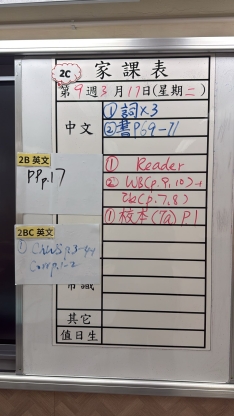 2C 家課表
第9週3月17日(星期二)
中文
① 詞x3
② 書P69-71
2B 英文
PP p.17
① Reader
② WB(p.9,10)→
(p.7,8)
2BC 英文
① 校本(7a) P1
Corr p.1-2
常識
其它
值日生